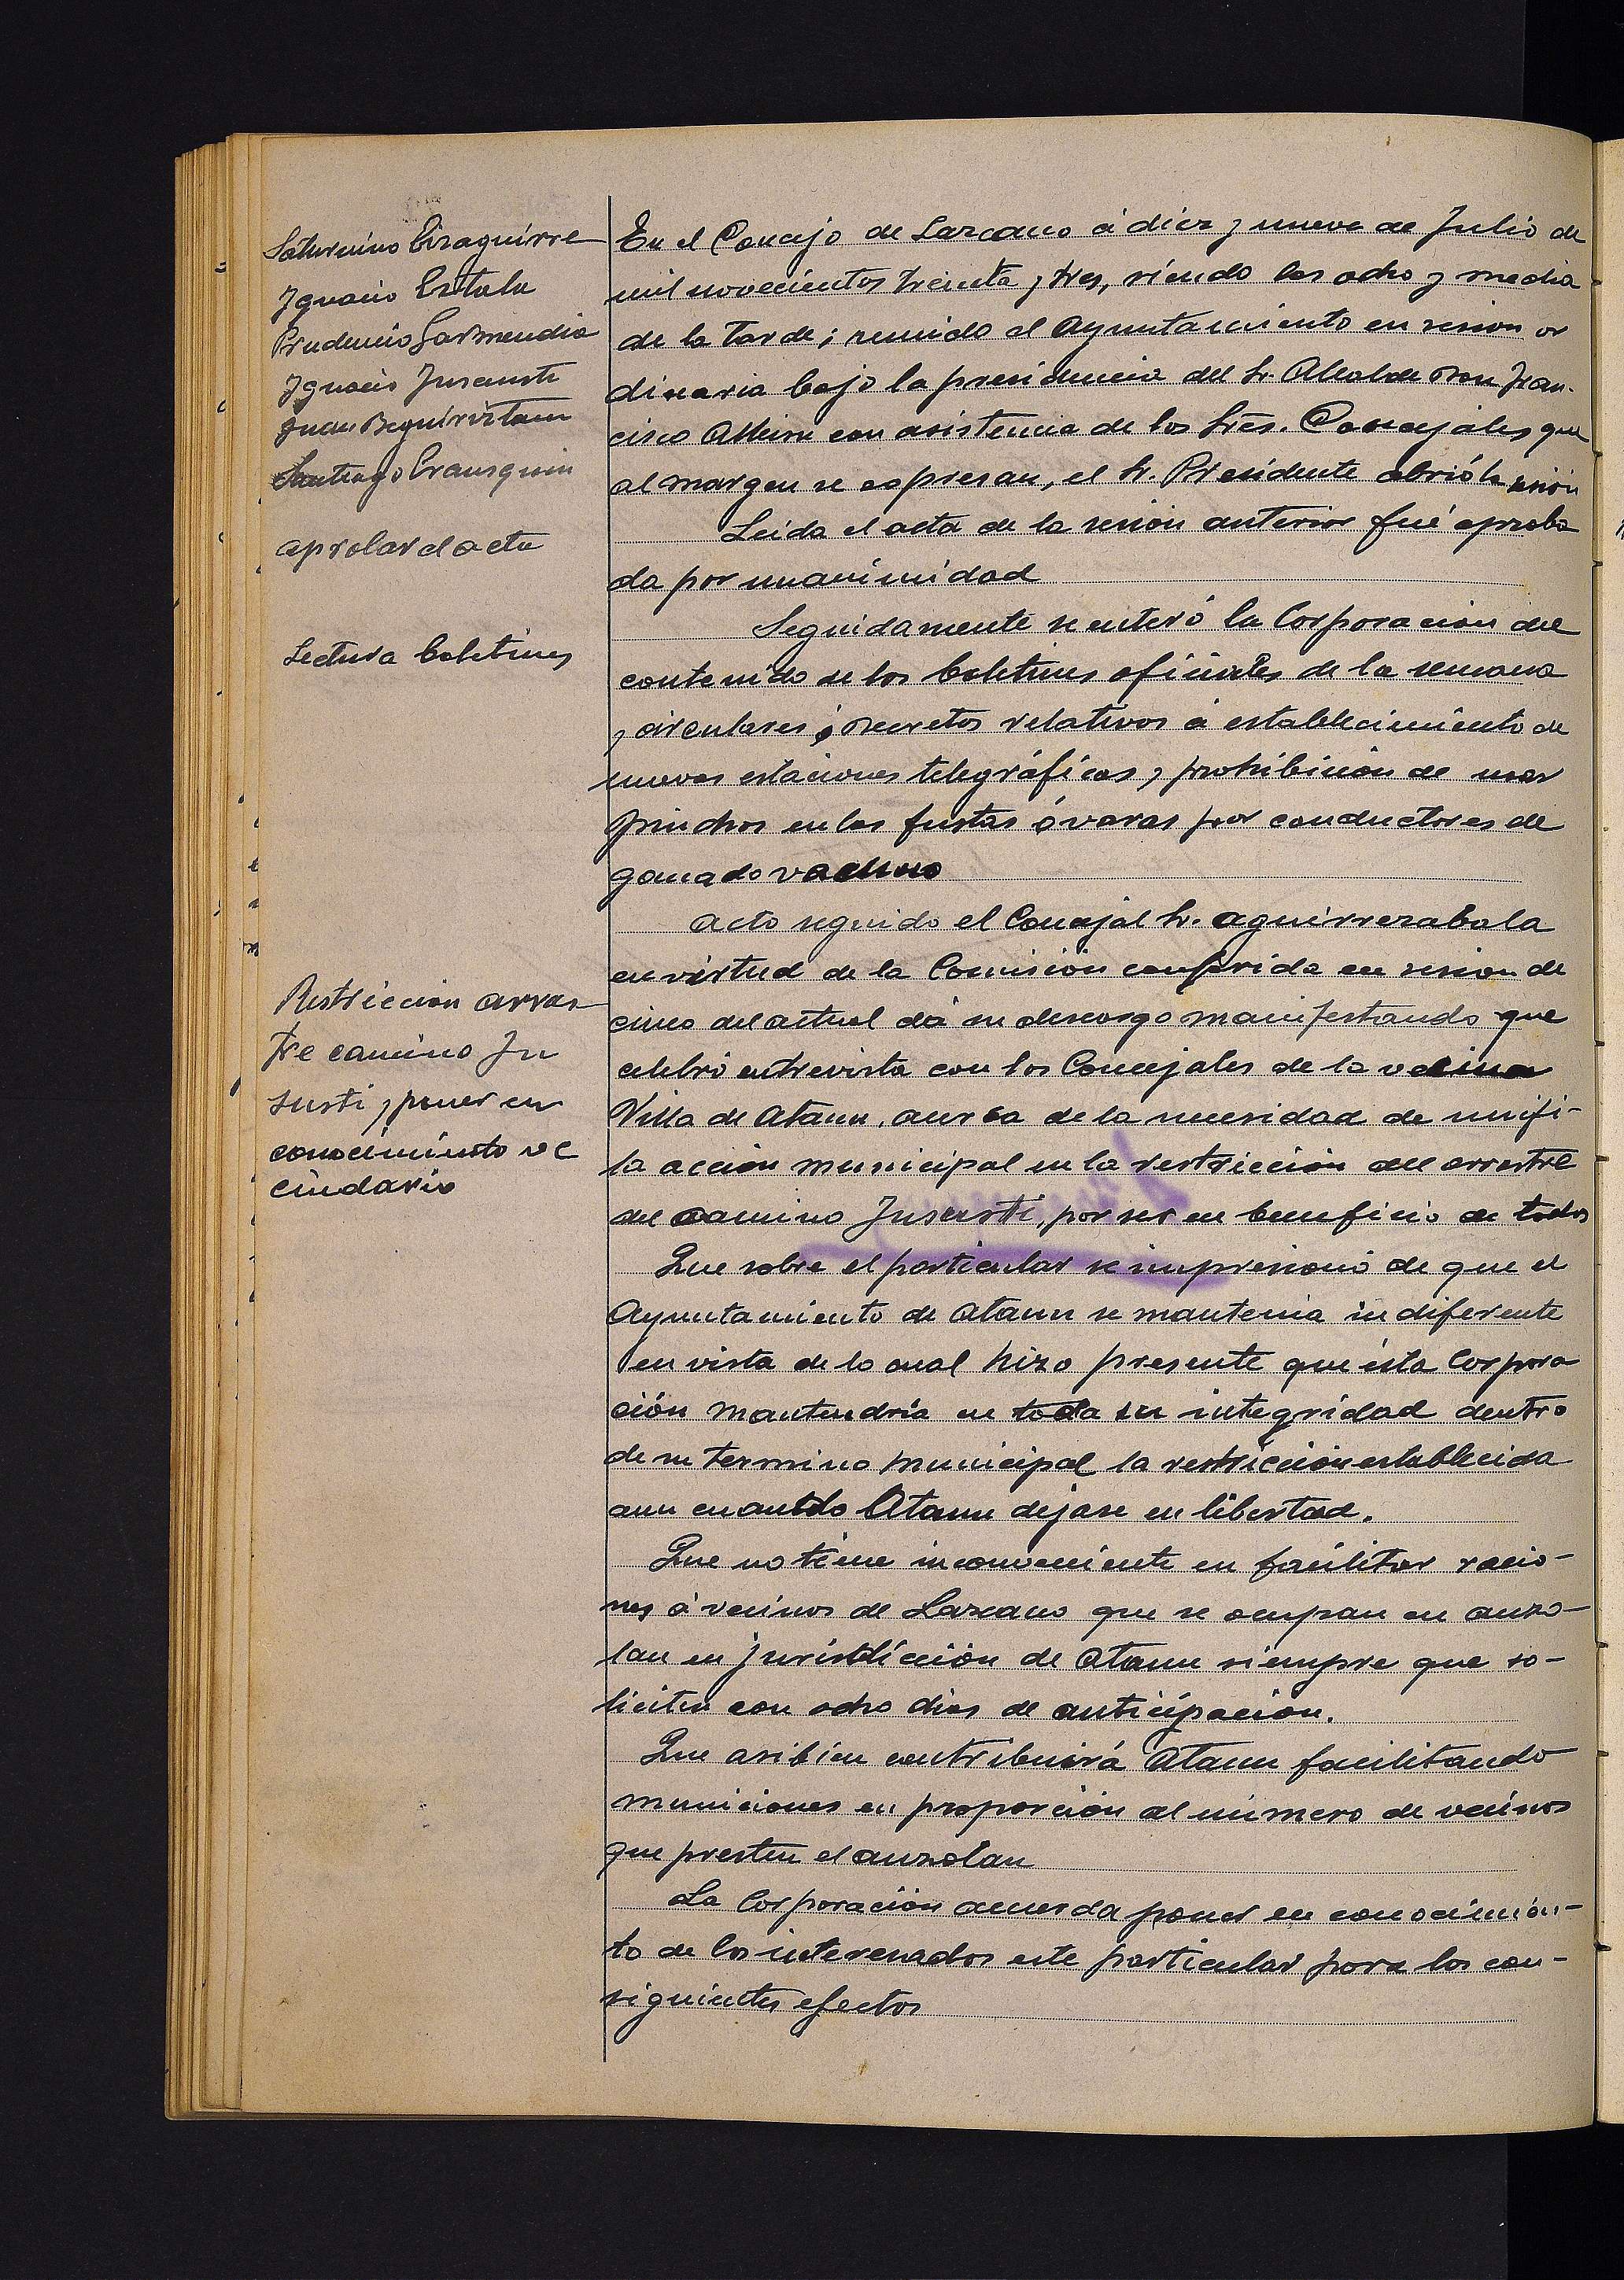 Saturnino Eizaguirre
Ignacio Estala
Prudencio Garmendia
Ignacio Insausti
Juan Beguiristain
Santiago Eransquin
aprobar el acta
Lectura boletines
Restriccion arras-
tre camino In
susti, poner en
conocimiento ve
cindario
En el Concejo de Lazcano á diez y nueve de Julio de
mil novecientos treinta y tres, siendo las ocho y media
de la tarde; reunido el Ayuntamiento en sesion or
dinaria bajo la presidencia del Sr. Alcalde Don Fran-
cisco con asistencia de los Sres. Concejales que
al margen se expresan, el Sr. Presidente abrió la sesión
Leida el acta de la sesion anterior fué aproba
da por unanimidad
Seguidamente se enteró la Corporacion del
contenido de los boletines oficiales de la semana
y circulares y Decretos relativos á establecimiento de
nuevas estaciones telegráficas y prohibición de usar
pinchos en las fustas ó varas por conductores de
ganado vacuno
Acto seguido el Concejal Sr. Aguirrezabala
en virtud de la Comisión conferida en sesion de
cinco del actual dá su descargo manifestando que
celebró entrevista con los Concejales de la vecina
Villa de Ataun, acerca de la necesidad de unifi-
la acción municipal en la restricción del arrastre
del camino Insausti, por ser en beneficio de todos
Que sobre el particular se impresionó de que el
Ayuntamiento de Ataun se mantenia indiferente
en vista de lo cual hizo presente que ésta Corpora
ción mantendria en toda su integridad dentro
de su termino municipal la restricción establecida
aun cuando Ataun dejase en libertad.
Que no tiene inconveniente en facilitar racio-
nes á vecinos de Lazcano que se ocupan en auzo-
lan en jurisdicción de Ataun siempre que so-
liciten con ocho dias de anticipacion.
Que asi bien contribuirá Ataun facilitando
municiones en proporción al número de vecinos
que presten el auzolan
La Corporación acuerda poner en conocimien-
to de los interesados este particular para los con-
siguientes efectos